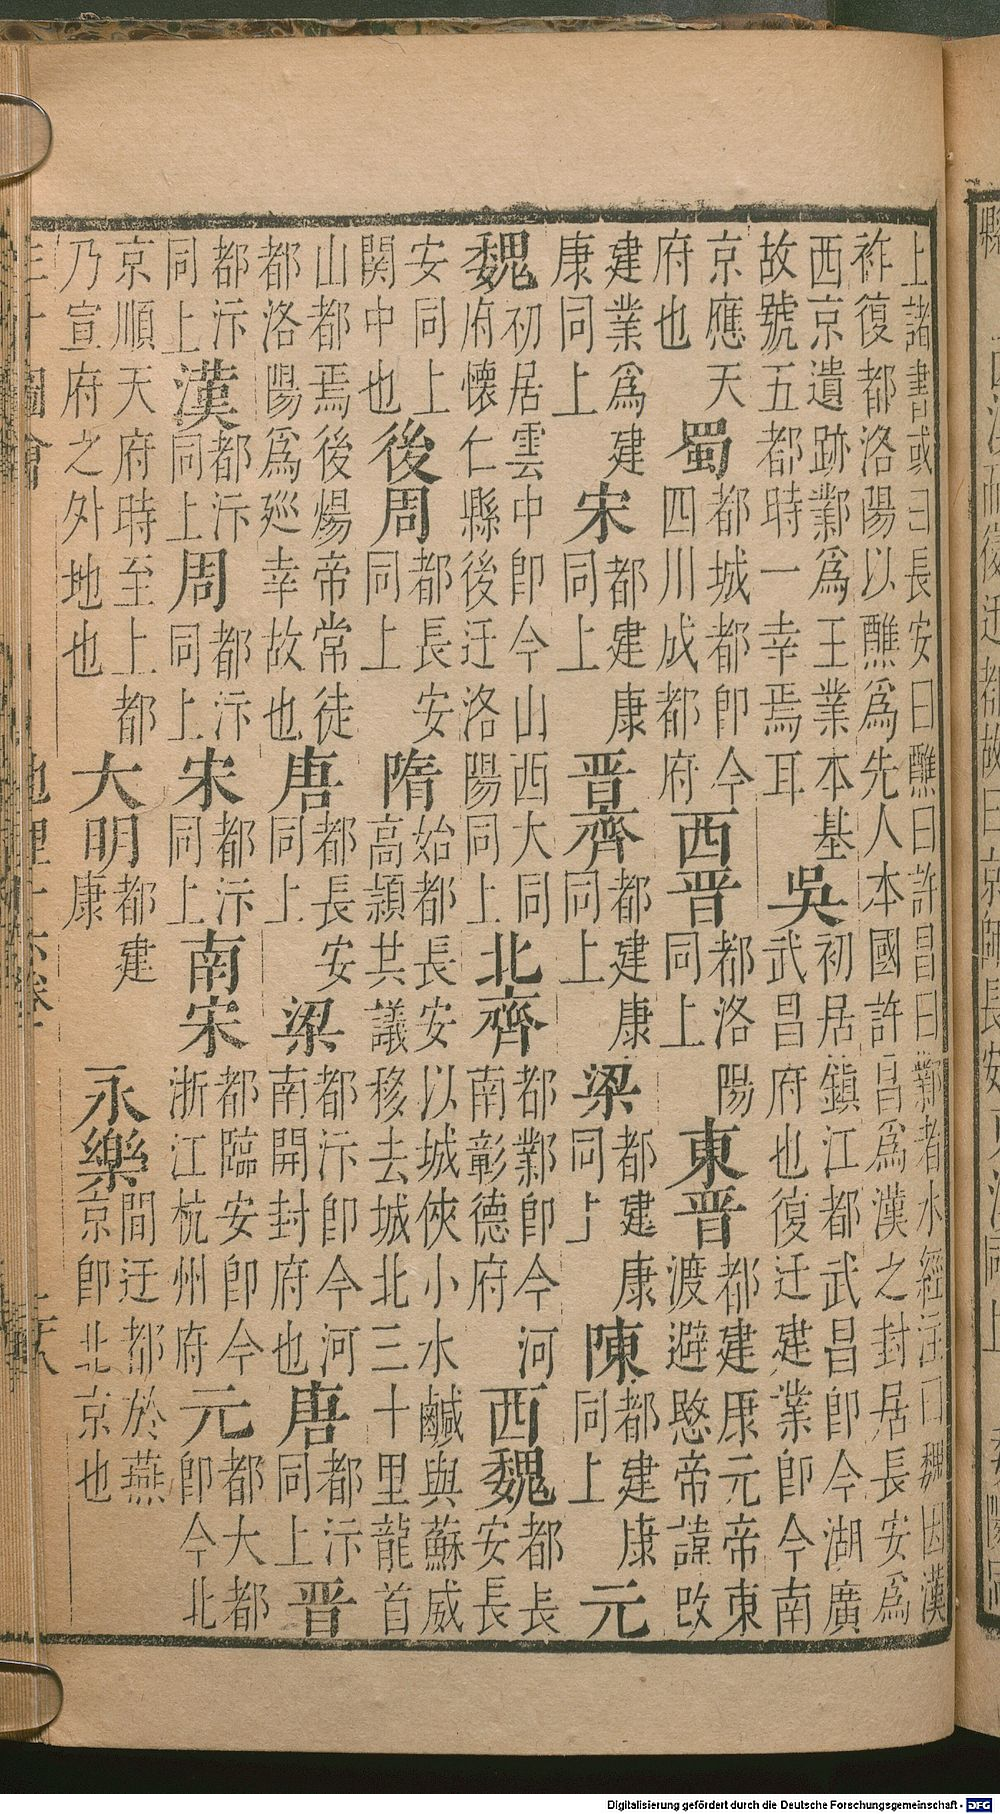 上諸書或曰長安曰譙曰許昌曰鄴者水經注曰魏因漢
祚復都洛陽以譙爲先人本國許昌爲漢之封居長安爲
西京遺跡鄴爲王業本基故號五都時一幸焉耳吳初居鎮江都武昌即今湖廣武昌府也復迁建業即今南
京應天府也蜀都城都即今四川成都府西晉都洛陽同上東晉都建康元帝東渡避愍帝諱改
建業爲建康同上宋都建康同上晉齊都建康同上梁都建康同上陳都建康同上元
魏初居雲中即今山西大同府懷仁縣後迁洛陽同上北齊都鄴即今河南彰德府西魏都長安長
安同上關中也後周都長安同上隋始都長安以城俠小水鹹與蘇威高熲共議移去城北三十里龍首
山都焉後煬帝常徒都洛陽爲廵幸故也唐都長安同上梁都汴即今河南開封府也唐都汴同上晉
都汴同上漢都汴同上周都汴同上宋都汴同上南宋都臨安即今浙江杭州府元都大都即今北
京順天府時至上都乃宣府之外地也大明都建康永樂間迁都於燕京即北京也
Digitalisierung gefördert durch die Deutsche Forschungsgemeinschaft - DFG